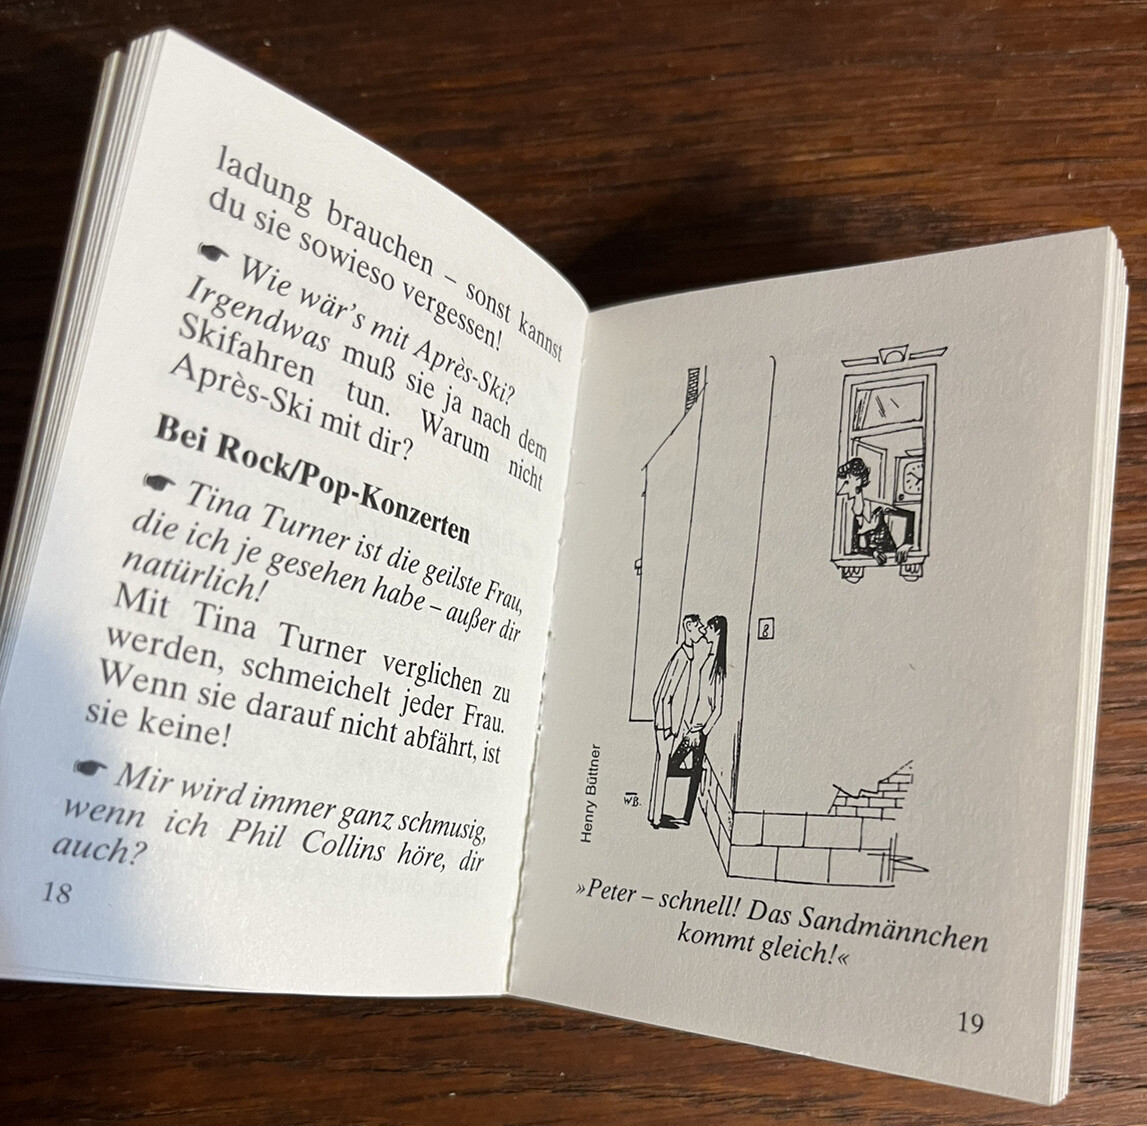 ladung brauchen – sonst kannst
du sie sowieso vergessen!
Wie wär's mit Après-Ski?
Irgendwas muß sie ja nach dem
Skifahren tun. Warum nicht
Après-Ski mit dir?
Bei Rock/Pop-Konzerten
Tina Turner ist die geilste Frau,
die ich je gesehen habe – außer dir
natürlich!
Mit Tina Turner verglichen zu
werden, schmeichelt jeder Frau.
Wenn sie darauf nicht abfährt, ist
sie keine!
Mir wird immer ganz schmusig,
wenn ich Phil Collins höre, dir
auch?
18
8
Henry Büttner
»Peter – schnell! Das Sandmännchen
kommt gleich!«
19